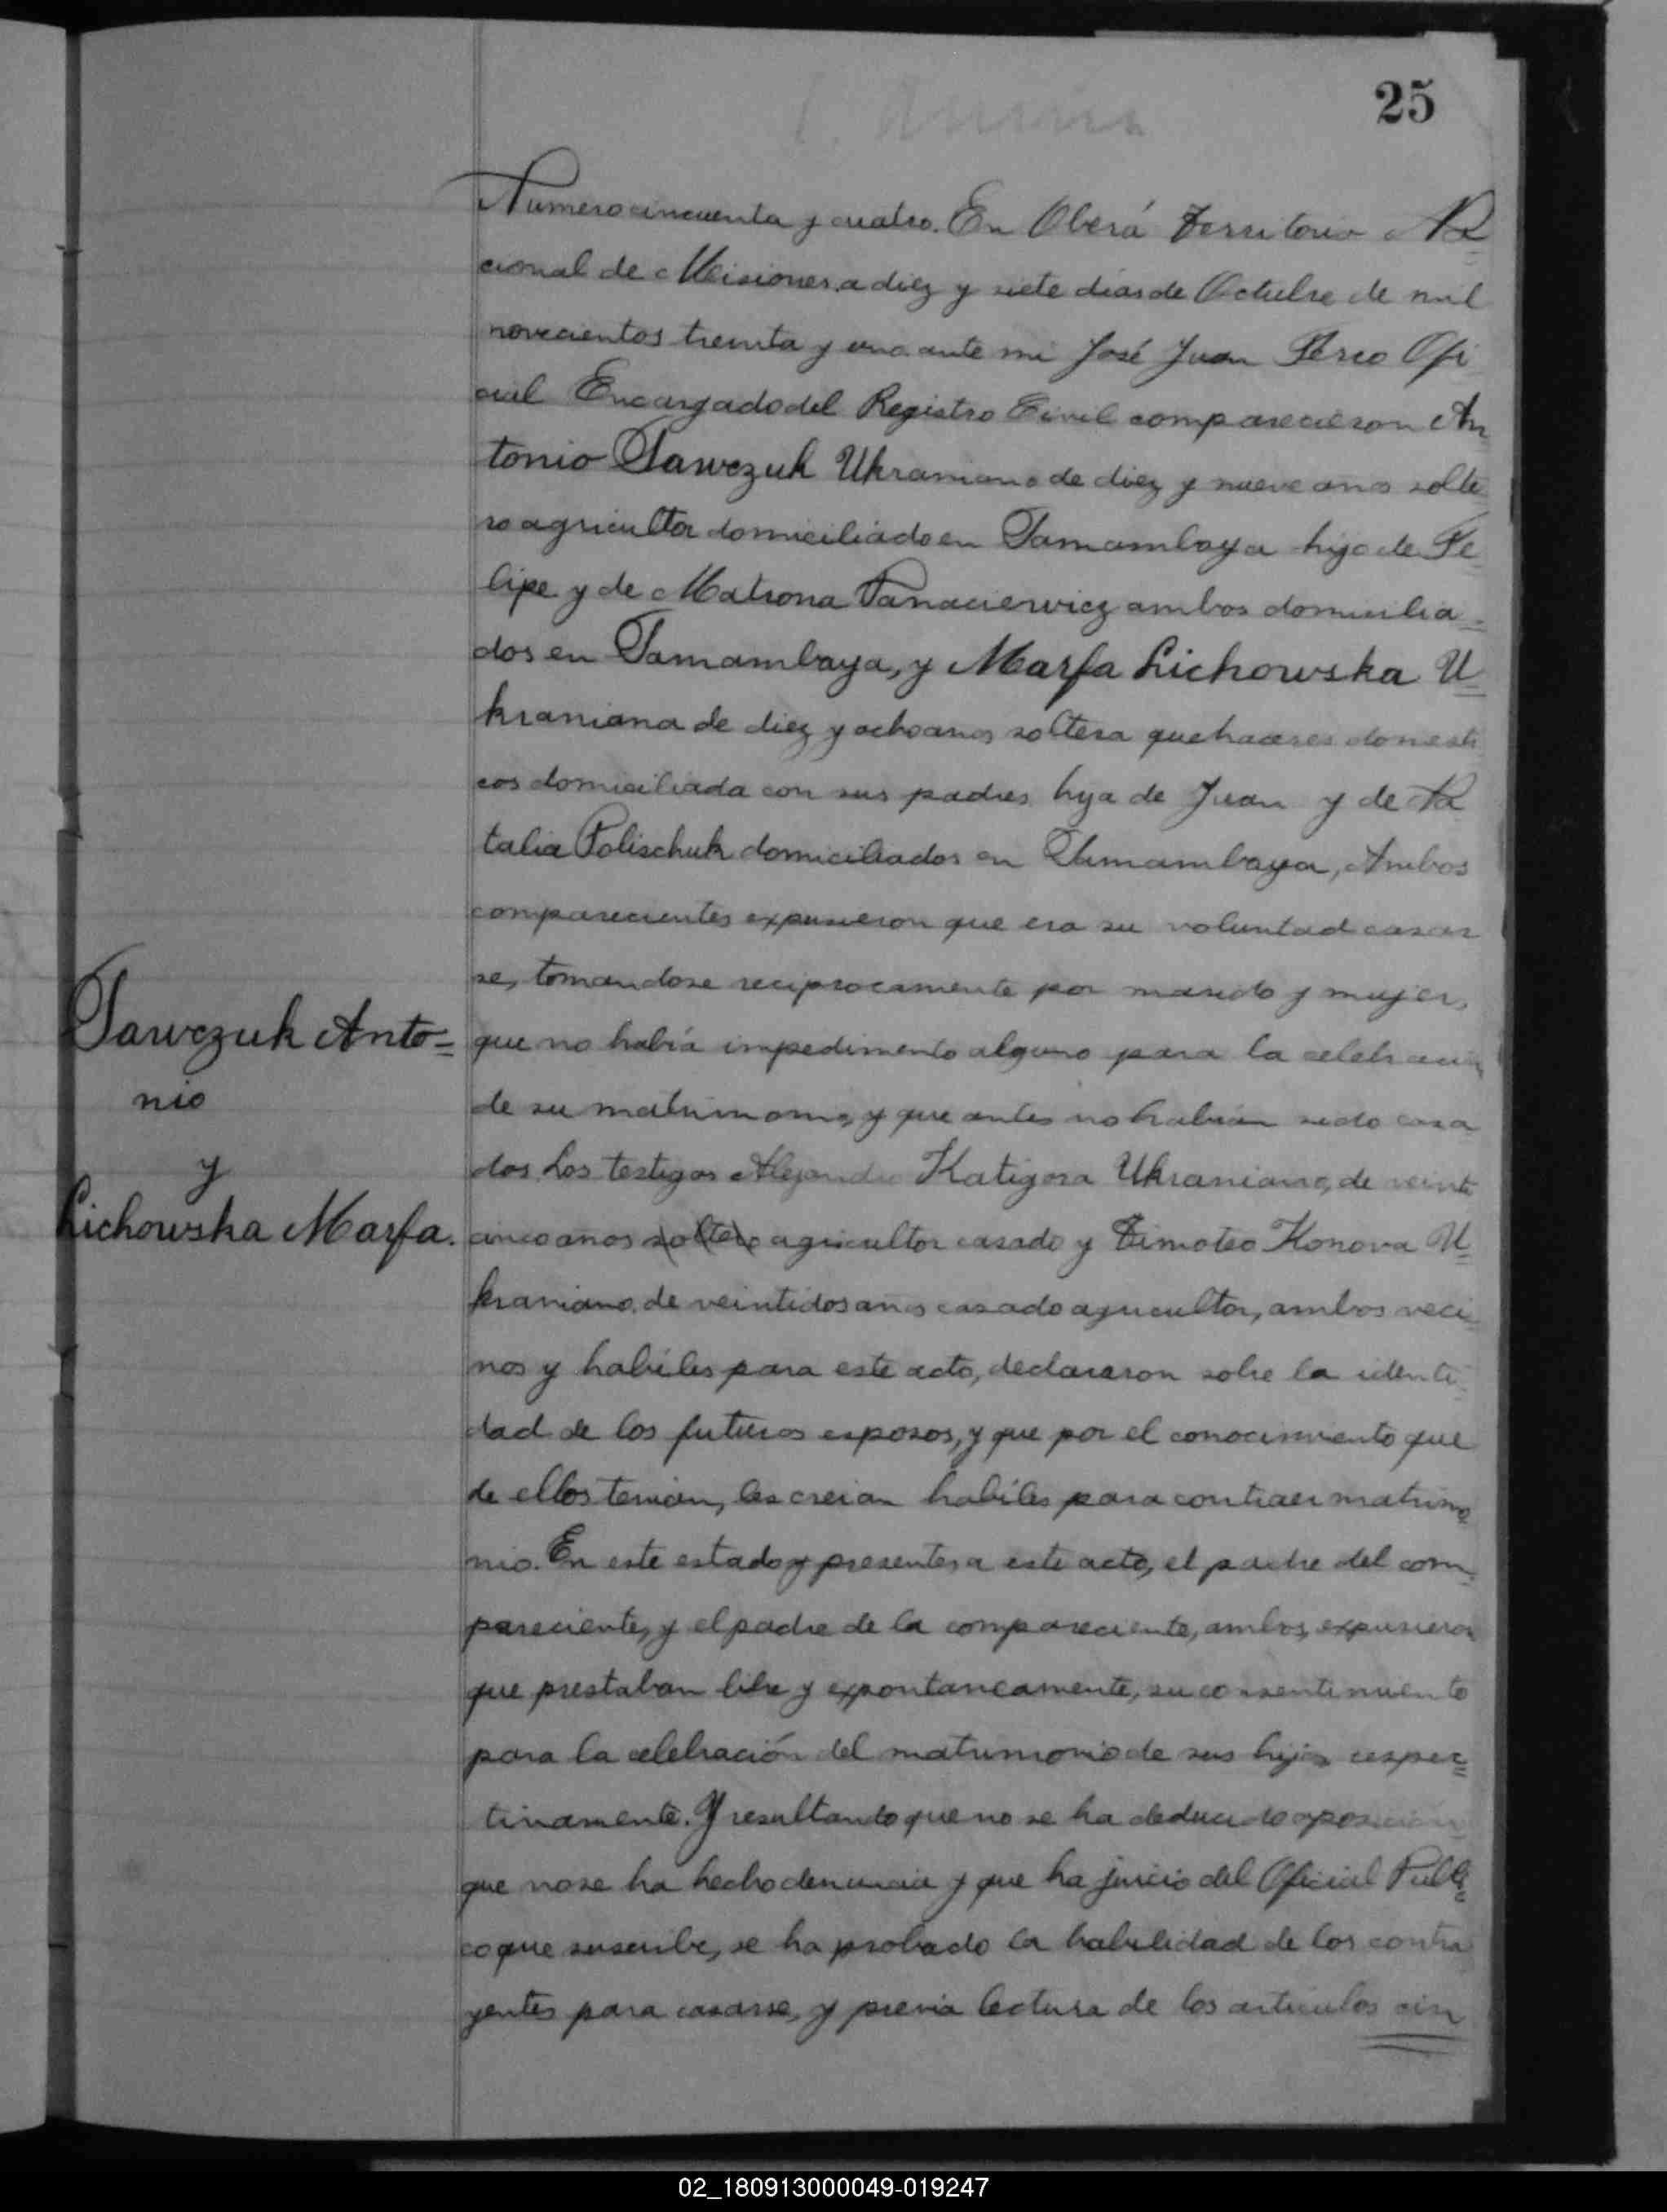 25
Numero cincuenta y cuatro. En Oberá Territorio Na
cional de Misiones, a diez y siete dias de Octubre de mil
novecientos treinta y uno ante mi José Juan Perco Ofi
cial Encargado del Registro Civil comparecieron An
tonio Sawczuk Ukraniano de diez y nueve anos solte
ro agricultor domiciliado en Samambaya hijo de Fe
lipe y de Matrona Panaciewicz ambos domicilia
dos en Samambaya, y Marfa Lichowska U
kraniana de diez y ocho anos soltera quehaceres domesti
cos domiciliada con sus padres hija de Juan y de Na
talia Polischuk domiciliados en Samambaya, Ambos
comparecientes expusieron que era su voluntad casar
se, tomandose reciprocamente por marido y mujer,
que no había impedimento alguno para la celebración
de su matrimonio, y que antes no habian sido casa
dos. Los testigos Alejandro Katigora Ukraniano, de veinti
cinco años soltero agricultor casado y Timoteo Konova U
kraniano, de veintidos años casado agricultor, ambos veci
nos y habiles para este acto, declararon sobre la identi
dad de los futuros esposos, y que por el conocimiento que
de ellos tenian, les creian habiles para contraer matrimo
nio. En este estado y presentes a este acto, el padre del com
pareciente, y el padre de la compareciente, ambos, expusieron
que prestaban libre y expontaneamente, su consentimiento
para la celebración del matrimonio de sus hijos respec
tivamente. Y resultando que no se ha deducido oposición
que no se ha hecho denuncia y que ha juicio del Oficial Publi
co que suscribe, se ha probado la habilidad de los contra
yentes para casarse, y previa lectura de los articulos cin
Sawczuk Anto=
nio
y
Lichowska Marfa.
02_180913000049-019247